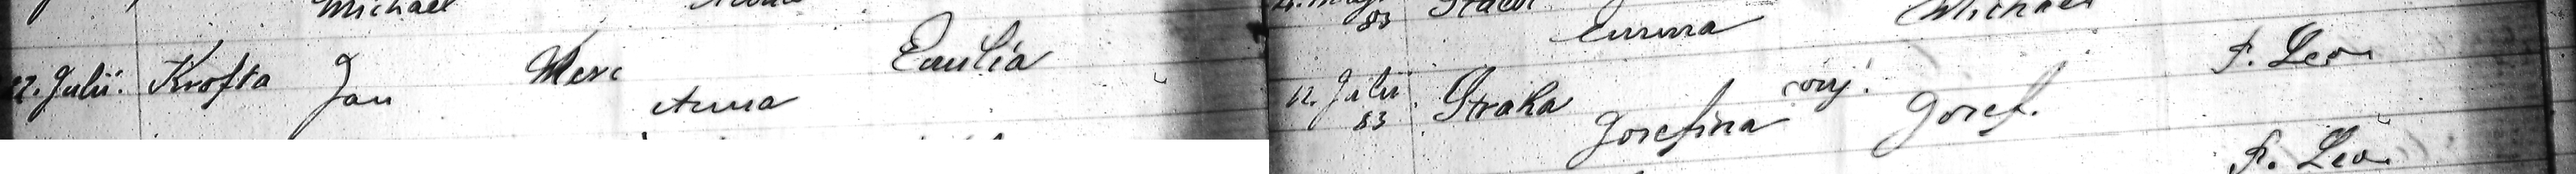 Michael
12. Julii. Krofta Jan Merc Anna Emilia
83 Emma Michael
12. Julii 83 Straha Josefina conj. Josef. F. Leo
F. Leo